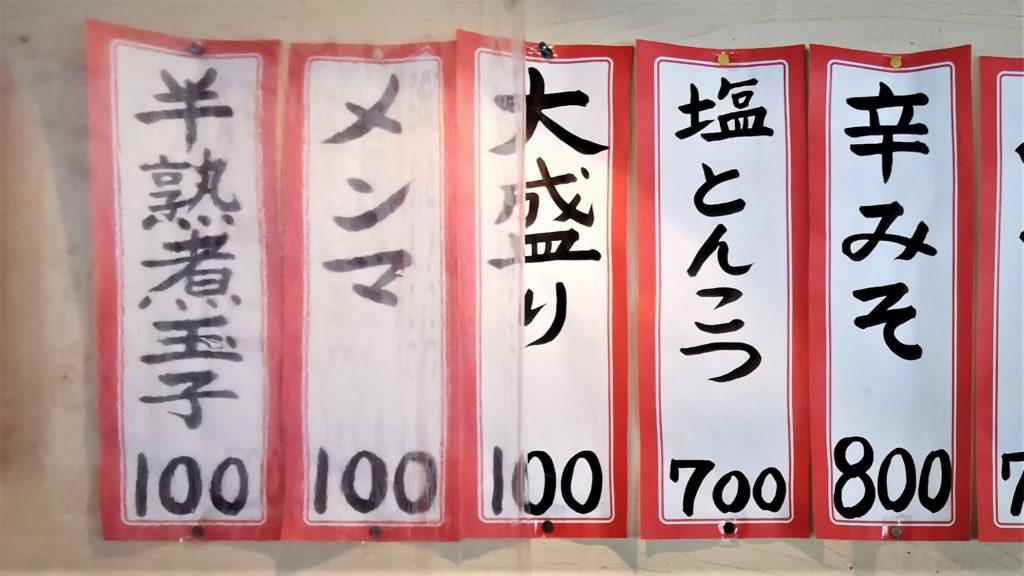 辛みそ
800
塩とんこつ
700
大盛り
100
メンマ
100
半熟煮玉子
100